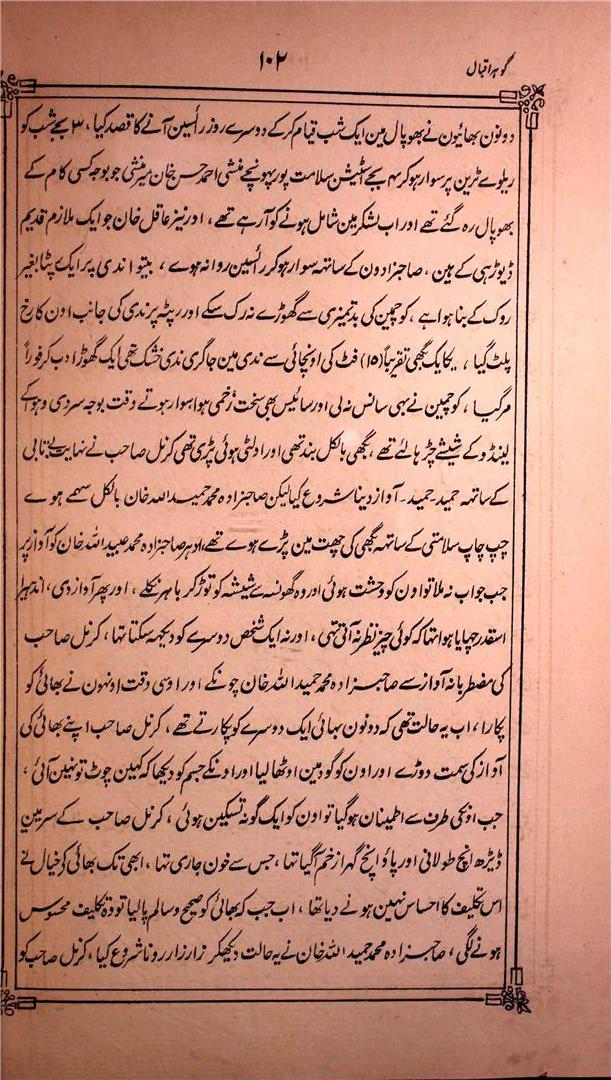 گوہر اقبال
۱۰۲
دونون بھائیون نے بھوپال مین ایک شب قیام کرکے دوسرے روز رائسین آنے کا قصد کیا ، ۳ بجے شب کو
ریلوے ٹرین پر سوار ہو کر ۴ بجے اسٹیشن سلامت پور پہونچے منشی احمد حسن خان میر منشی جو بوجہ کسی کام کے
بھوپال رہ گئے تھے اور اب لشکر مین شامل ہونے کو آرہے تھے ، اور نیز عاقل خان جو ایک ملازم قدیم
ڈیوڑہی کے ہین ، صاحبزادون کے ساتھہ سوار ہو کر رائسین روانہ ہوے ، بیتوا ندی پر ایک رپٹا بغیر
روک کے بنا ہوا ہے ، کوچمین کی بدتمیزی سے گھوڑے نہ رک سکے اور رپٹہ پر ندی کی جانب اون کا رخ
پلٹ گیا ، یکایک بگھی تقریباً (۱۵) فٹ کی اونچائی سے ندی مین جاگری ندی خشک تھی ایک گھوڑا دب کر فوراً
مر گیا ، کوچمین نے بہی سانس نہ لی اور سائیس بھی سخت زخمی ہوا سوار ہوتے وقت بوجہ سردی و ہوا کے
لینڈو کے شیشے چڑہا لئے تھے ، بگھی بالکل بند تھی اور اولٹی ہوئی پڑی تھی کرنل صاحب نے نہایت بے تابی
کے ساتھہ حمید۔ حمید۔ آواز دینا شروع کیا لیکن صاحبزادہ محمد حمید اللہ خان بالکل سہمے ہوے
چپ چاپ سلامتی کے ساتھہ بگھی کی چھت مین پڑے ہوے تھے ، ادہر صاحبزادہ محمد عبید اللہ خان کو آواز پر
جب جواب نہ ملا تو اون کو وحشت ہوئی اور وہ گھونسہ سے شیشہ کو توڑ کر باہر نکلے ، اور پھر آواز دی ، اندہیرا
اسقدر چھایا ہوا تہا کہ کوئی چیز نظر نہ آتی تہی ، اور نہ ایک شخص دوسرے کو دیکھہ سکتا تہا ، کرنل صاحب
کی مضطربانہ آواز سے صاحبزادہ محمد حمید اللہ خان چونکے اور اوسی وقت اونہون نے بھائی کو
پکارا ، اب یہ حالت تھی کہ دونون بہائی ایک دوسرے کو پکارتے تھے ، کرنل صاحب اپنے بھائی کی
آواز کی سمت دوڑے اور اون کو گود مین اوٹھا لیا اور اونکے جسم کو دیکھا کہ کہین چوٹ تو نہین آئی ،
جب اونکی طرف سے اطمینان ہوگیا تو اون کو ایک گونہ تسکین ہوئی ، کرنل صاحب کے سر مین
ڈیڑھ انچ طولانی اور پاؤ انچ گہرا زخم آگیا تہا ، جس سے خون جاری تہا ، ابھی تک بھائی کو خیال نے
اس تکلیف کا احساس نہین ہونے دیا تھا ، اب جب کہ بھائی کو صحیح و سالم پالیا تو وہ تکلیف محسوس
ہونے لگی ، صاحبزادہ محمد حمید اللہ خان نے یہ حالت دیکھکر زار زار رونا شروع کیا ، کرنل صاحب کو